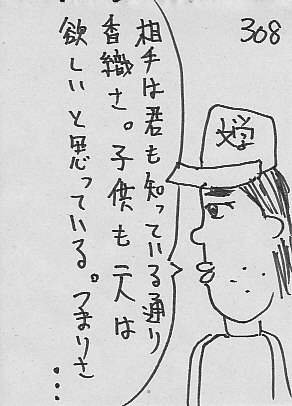 308
相手は君も知っている通り
香織さ。子供も二人は
欲しいと思っている。つまりさ
・・・
大学